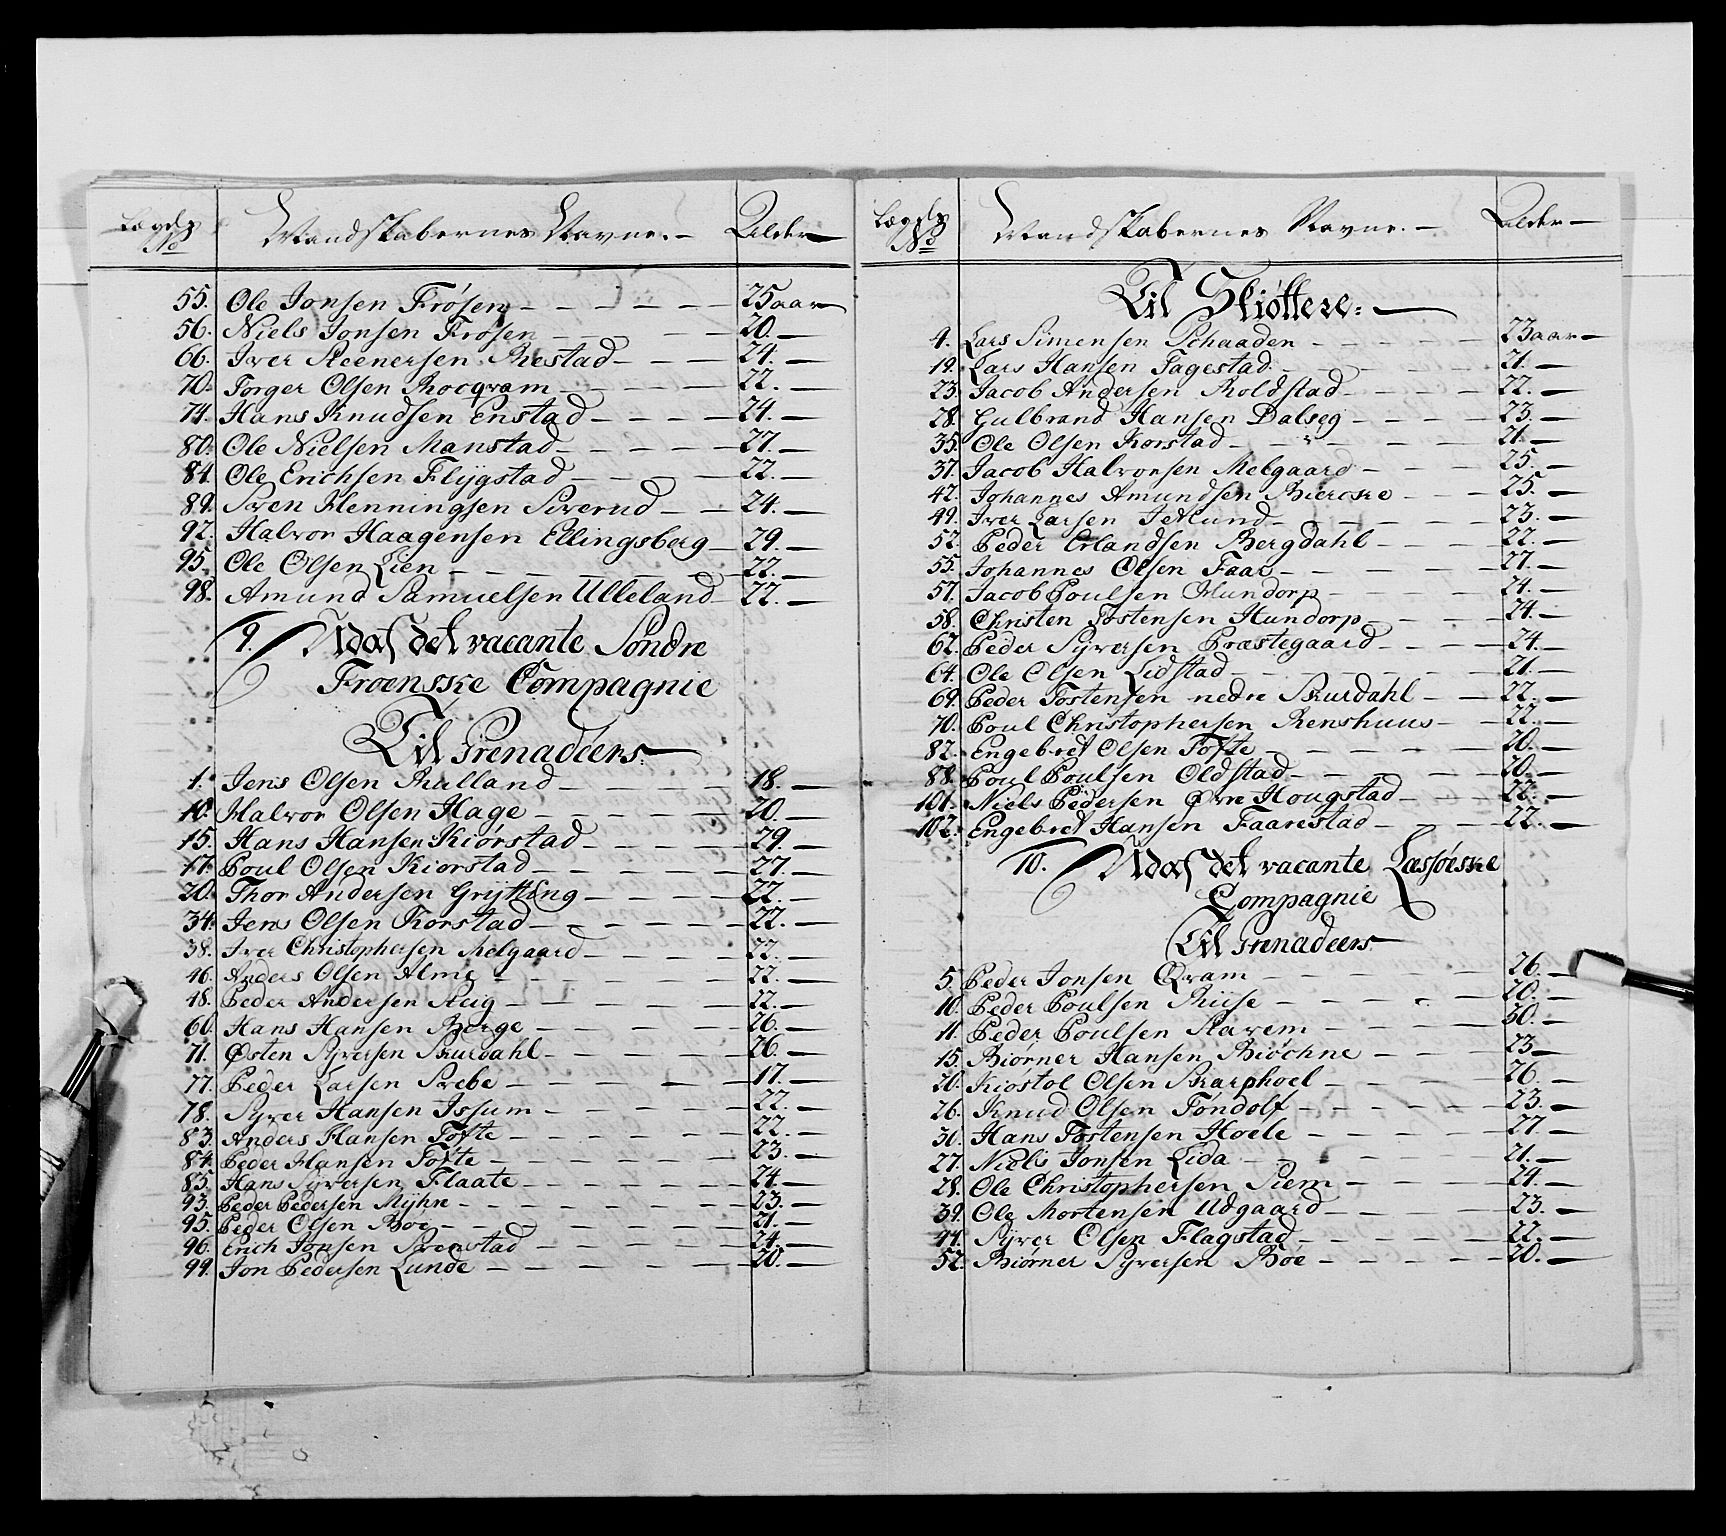 Lægds No Mandskabernes Navne. Alder
55. Ole Jonsen Frøsen 25 aar
56. Niels Jonsen Frøsen 20.
66. Iver Steenersen Brestad 24.
70. Torger Olsen Rocqvam 22.
74. Hans Knudsen Enstad 24.
80. Ole Nielsen Manstad 27.
84. Ole Erichsen Flygstad 22.
89. Sven Henningsen Siverud 24.
92. Halvor Haagensen Ellingsberg 29.
95. Ole Olsen Lien 22.
98. Amund Samuelsen Ulleland 22.
9. Udaf det vacante Söndre
Froenske Compagnie
Til Grenadeers.
1. Jens Olsen Rulland 18.
10. Halvor Olsen Hage 20.
15. Hans Hansen Kiørstad 29.
17. Poul Olsen Kiorstad 27.
20. Thor Andersen Grytting 22.
34. Jens Olsen Korstad 22.
38. Iver Christophersen Melgaard 22.
46. Anders Olsen Alme 22.
48. Peder Andersen Steig 22.
60. Hans Hansen Berge 26.
71. Østen Syversen Skurdahl 26.
77. Peder Larsen Brebe 17.
78. Syver Hansen Issum 22.
83. Anders Hansen Tofte 22.
84. Peder Hansen Tofte 23.
85. Hans Syversen Flaate 24.
93. Peder Pedersen Myhre 23.
95. Peder Olsen Boe 21.
96. Erich Jonsen Svenstad 24.
99. Jon Pedersen Lunde 20.
Lægds No Mandskabernes Navne. Alder
Til Skiøttere.
4. Lars Simensen Schaaden 23 aar
19. Lars Hansen Fagestad 21.
23. Jacob Andersen Roldstad 22.
28. Gulbrand Hansen Dalseg 23.
35. Ole Olsen Korstad 21.
37. Jacob Halvorsen Melgaard 25.
42. Johannes Amundsen Bieroke 25.
49. Iver Larsen 23.
52. Peder Erlandsen Bergdahl 22.
55. Johannes Olsen Faar 27.
57. Jacob Poulsen Hundorp 24.
58. Christen Tostensen Hundorp 24.
62. Peder Syversen Præstegaard 24.
64. Ole Olsen Lidstad 21.
69. Peder Tostensen nedre Skurdahl 22.
70. Poul Christophersen Renshuus 22.
82. Engebret Olsen Tofte 20.
88. Poul Poulsen Oldstad 20.
101. Niels Pedersen Øvre Hougstad 22.
102. Engebret Hansen Faarestad 22.
10. Udaf det vacante Læssøeske
Compagnie
Til Grenadeers
5. Peder Jonsen Qvam 26.
10. Peder Poulsen Riise 20.
11. Peder Poulsen Slavem 30.
15. Biörner Hansen Biöchne 23
20. Kiostol Olsen Skarphoel 26.
26. Knud Olsen Töndolf 23.
30. Hans Tostensen Hoele 27.
27. Niels Jonsen Lida 21.
28. Ole Christophersen Siem 29.
39. Ole Mortensen Udgaard 23.
44. Syver Olsen Flagstad 22.
52. Biörner Syversen Böe 20.